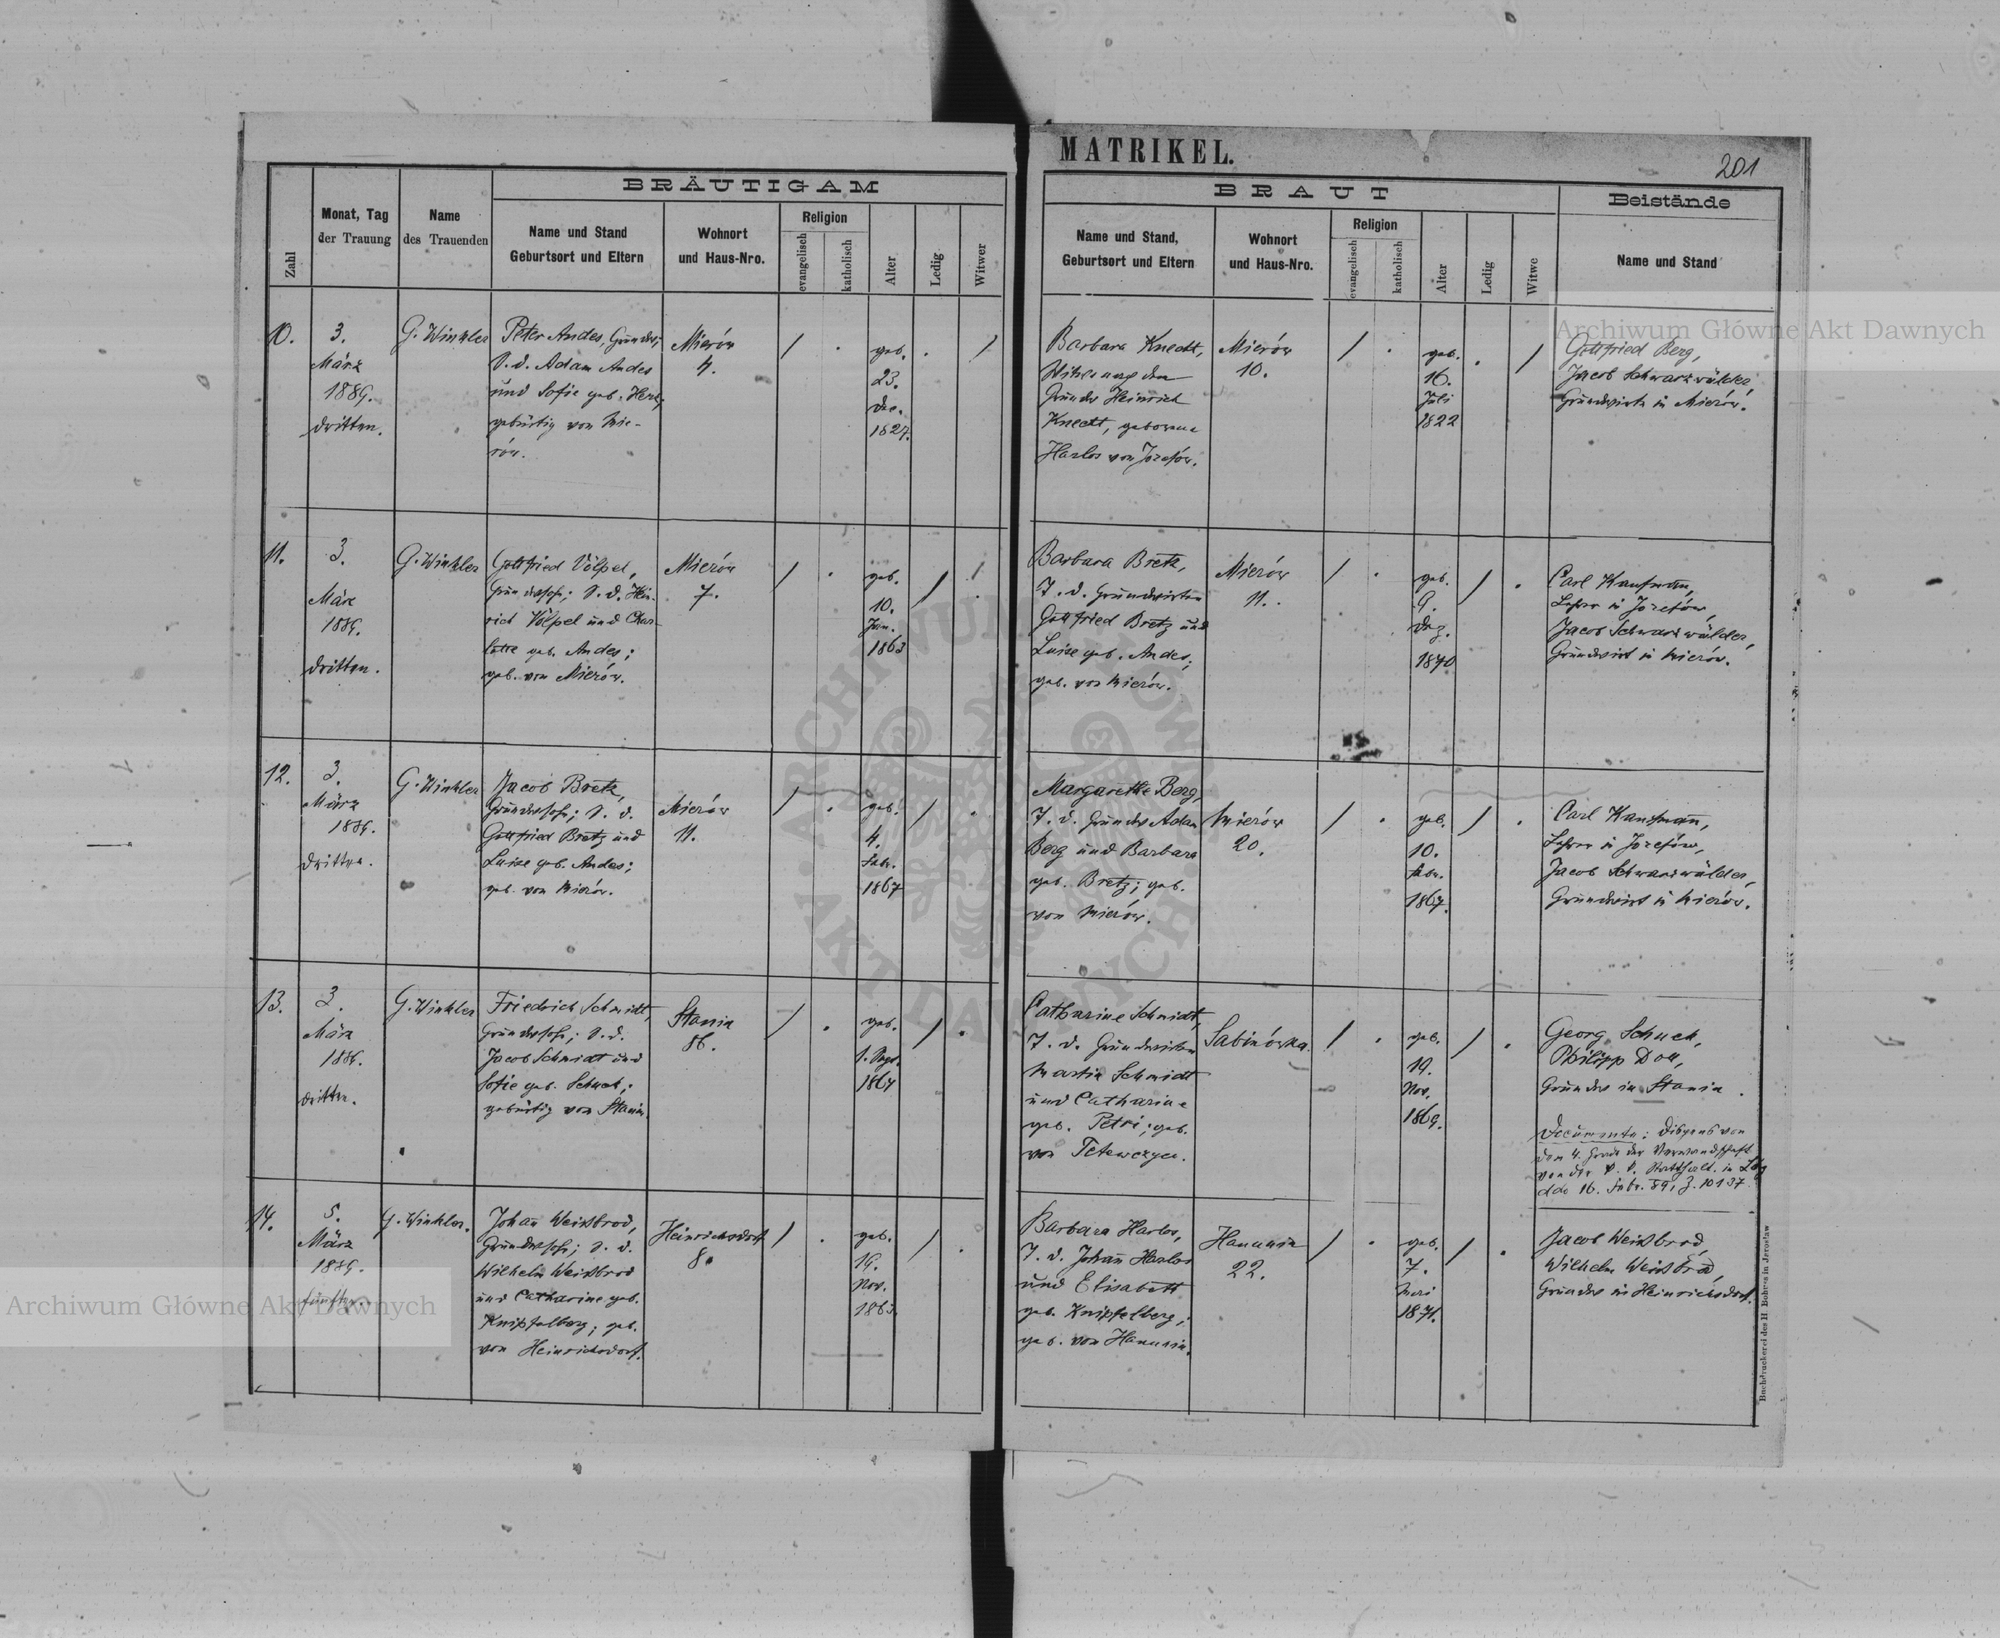 MATRIKEL.
201
BRÄUTIGAM
BRAUT
Beistände
Zahl
Monat, Tag
der Trauung
Name
des Trauenden
Name und Stand
Geburtsort und Eltern
Wohnort
und Haus-Nro.
Religion
evangelisch
katholisch
Alter
Ledig
Witwer
Name und Stand,
Geburtsort und Eltern
Wohnort
und Haus-Nro.
Religion
evangelisch
katholisch
Alter
Ledig
Witwe
Name und Stand
Archiwum Główne Akt Dawnych
10.
3.
März
1889.
dritten.
G. Winkler
Peter Andes,
S. d. Adam Andes
und Sofie geb.
gebürtig von Mie-
rów.
Mierów
4.
geb.
23.
Dec.
1827.
Barbara Knecht,
Heinrich
Knecht, geborene
Harlos von Józefów.
Mierów
10.
geb.
16.
Juli
1822
Gottfried Berg,
Jacob Schwarzwälder,
Grundwirte in Mierów.
11.
3.
März
1889.
dritten.
G. Winkler
Gottfried Völpel,
Grundwsohn; S. d. Hein-
rich Völpel und Char-
lotte geb. Andes;
geb. von Mierów.
Mierów
7.
geb.
10.
Jan.
1863
Barbara Bretz,
T. d. Grundwirten
Gottfried Bretz und
Luise geb. Andes;
geb. von Mierów.
Mierów
11.
geb.
9.
Dez.
1870
Carl Kaufmann,
Lehrer in Józefów,
Jacob Schwarzwälder,
Grundwirt in Mierów.
12.
3.
März
1889.
dritten.
G. Winkler
Jacob Bretz,
Grundwsohn; S. d.
Gottfried Bretz und
Luise geb. Andes;
geb. von Mierów.
Mierów
11.
geb.
4.
Febr.
1867
Margarethe Berg,
T. d. Grundw Adam
Berg und Barbara
geb. Bretz; geb.
von Mierów.
Mierów
20.
geb.
10.
Febr.
1867.
Carl Kaufmann,
Lehrer in Józefów,
Jacob Schwarzwälder,
Grundwirt in Mierów.
13.
3.
März
1889.
dritten.
G. Winkler
Friedrich Schmidt,
Grundwsohn; S. d.
Jacob Schmidt und
Sofie geb. Schuck;
gebürtig von Stanin.
Stanin
86.
geb.
1. Sept.
1864
Catharine Schmidt,
T. d. Grundwirten
Martin Schmidt
und Catharine
geb. Petri; geb.
von Tetewczyce.
Sabinówka.
geb.
19.
Nov.
1869.
Georg Schuck,
Philipp Doll,
Grundw in Stanin.
Documente: Dispens von
dem 4. Grade der Verwandtschaft
von der k. k. Statthalt. in Lbg
ddo 16. Febr. 89, Z. 10137
14.
5.
März
1889.
fünften.
G. Winkler.
Johann Weißbrod,
Grundwsohn; S. d.
Wilhelm Weißbrod
und Catharine geb.
Knipfelberg; geb.
von Heinrichsdorf.
Heinrichsdorf
8.
geb.
19.
Nov.
1863.
Barbara Harlos,
T. d. Johann Harlos
und Elisabett
geb. Knipfelberg;
geb. von Hanunin.
Hanunin
22.
geb.
7.
1871.
Jacob Weißbrod,
Wilhelm Weißbrod,
Grundw in Heinrichsdorf.
Archiwum Główne Akt Dawnych
ARCHIWUM GŁÓWNE AKT DAWNYCH
Buchdruckerei des H. Bohrs in Jaroslaw